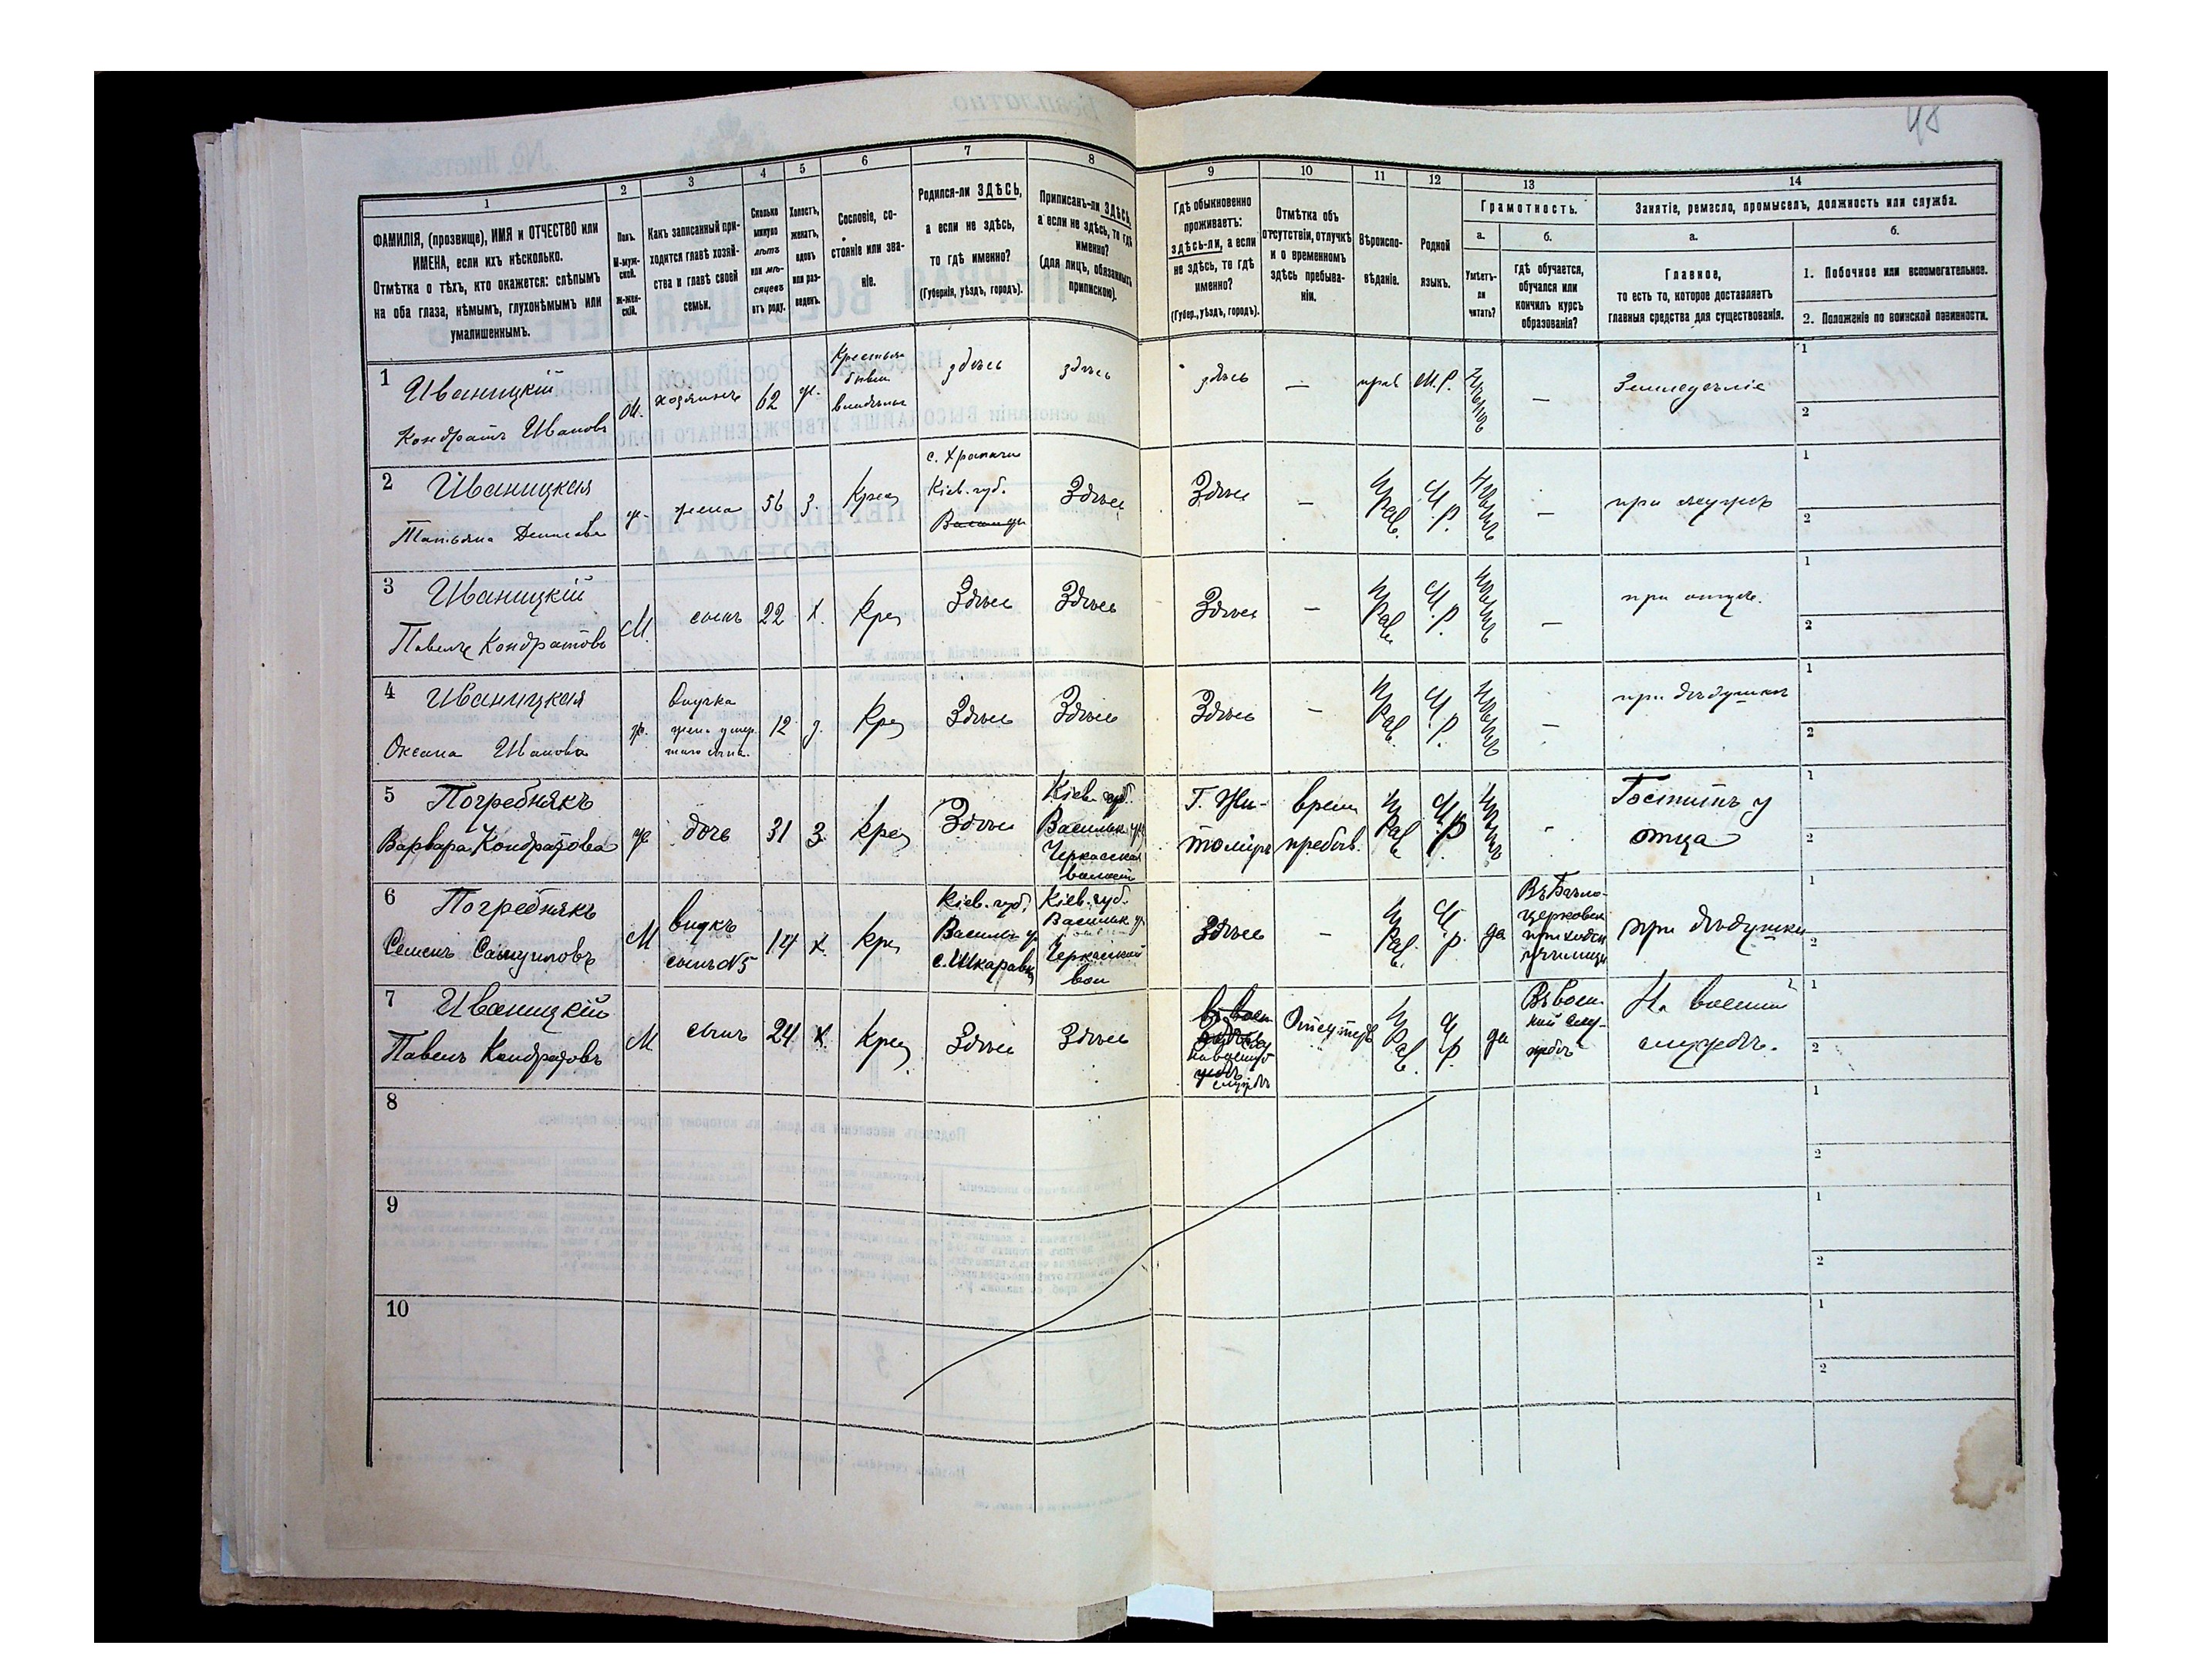 48
1
2
3
4
5
6
7
8
9
10
11
12
13
14
ФАМИЛІЯ, (прозвище), ИМЯ и ОТЧЕСТВО или
ИМЕНА, если ихъ нѣсколько.
Отмѣтка о тѣхъ, кто окажется: слѣпымъ
на оба глаза, нѣмымъ, глухонѣмымъ или
умалишеннымъ.
Полъ.
М-муж-
ской.
Ж-жен-
скій.
Какъ записанный при-
ходится главѣ хозяй-
ства и главѣ своей
семьи.
Сколько
минуло
лѣтъ
или мѣ-
сяцевъ
отъ роду.
Холостъ,
женатъ,
вдовъ
или раз-
веденъ.
Сословіе, со-
стояніе или зва-
ніе.
Родился-ли ЗДѢСЬ,
а если не здѣсь,
то гдѣ именно?
(Губернія, уѣздъ, городъ).
Приписанъ-ли ЗДѢСЬ,
а если не здѣсь, то гдѣ
именно?
(для лицъ, обязанныхъ
припискою).
Гдѣ обыкновенно
проживаетъ:
ЗДѢСЬ-ЛИ, а если
не здѣсь, то гдѣ
именно?
(Губер., уѣздъ, городъ).
Отмѣтка объ
отсутствіи, отлучкѣ
и о временномъ
здѣсь пребыва-
ніи.
Вѣроиспо-
вѣданіе.
Родной
языкъ.
Грамотность.
а.
Умѣетъ-
ли
читать?
б.
гдѣ обучается,
обучался или
кончилъ курсъ
образованія?
Занятіе, ремесло, промыселъ, должность или служба.
а.
Главное,
то есть то, которое доставляетъ
главныя средства для существованія.
б.
1. Побочное или вспомогательное.
2. Положеніе по воинской повинности.
1
Иваницкій
Кондратъ Ивановъ
М.
хозяинъ
62
ж.
здѣсь
здѣсь
здѣсь
—
прав
М.Р.
—
Земледѣліе
1
2
2
Иваницкая
Татьяна Денисова
ж.
жена
56
з.
Крес
Кіев. губ.
Здѣсь
Здѣсь
—
Прав.
—
при мужѣ
1
2
3
Иваницкій
Павелъ Кондратовъ
М.
сынъ
22
х.
Крес
Здѣсь
Здѣсь
Здѣсь
—
Прав.
—
при отцѣ.
1
2
4
Иваницкая
Оксана Иванова
ж.
внучка
12
Крес
Здѣсь
Здѣсь
Здѣсь
—
Прав.
—
при дѣдушкѣ
1
2
5
Погребнякъ
Варвара Кондратова
ж
дочь
31
З.
Крес
Здѣсь
Кіев. губ.
Васильк. у.
Черкасская
волость
Г. Жи-
томіръ
врем.
пребыв.
Прав.
-
Гоститъ у
отца
1
2
6
Погребнякъ
Семенъ Самуиловъ
М
внукъ
сынъ №5
14
х.
Крес
Кіев. губ.
Васильк у.
с. Шкаравка
Кіев. губ.
Васильк. у.
Черкасской
вол
Здѣсь
—
Прав.
да
Въ Бѣло-
церковск
приходск
училищѣ
при дѣдушкѣ
1
2
7
Иваницкій
Павелъ Кондратовъ
М
сынъ
24
х
Крес
Здѣсь
Здѣсь
службѣ
Отсутств
Прав.
да
Въ воен-
ной слу-
жбѣ
На военной
службѣ.
1
2
8
1
2
9
1
2
10
1
2